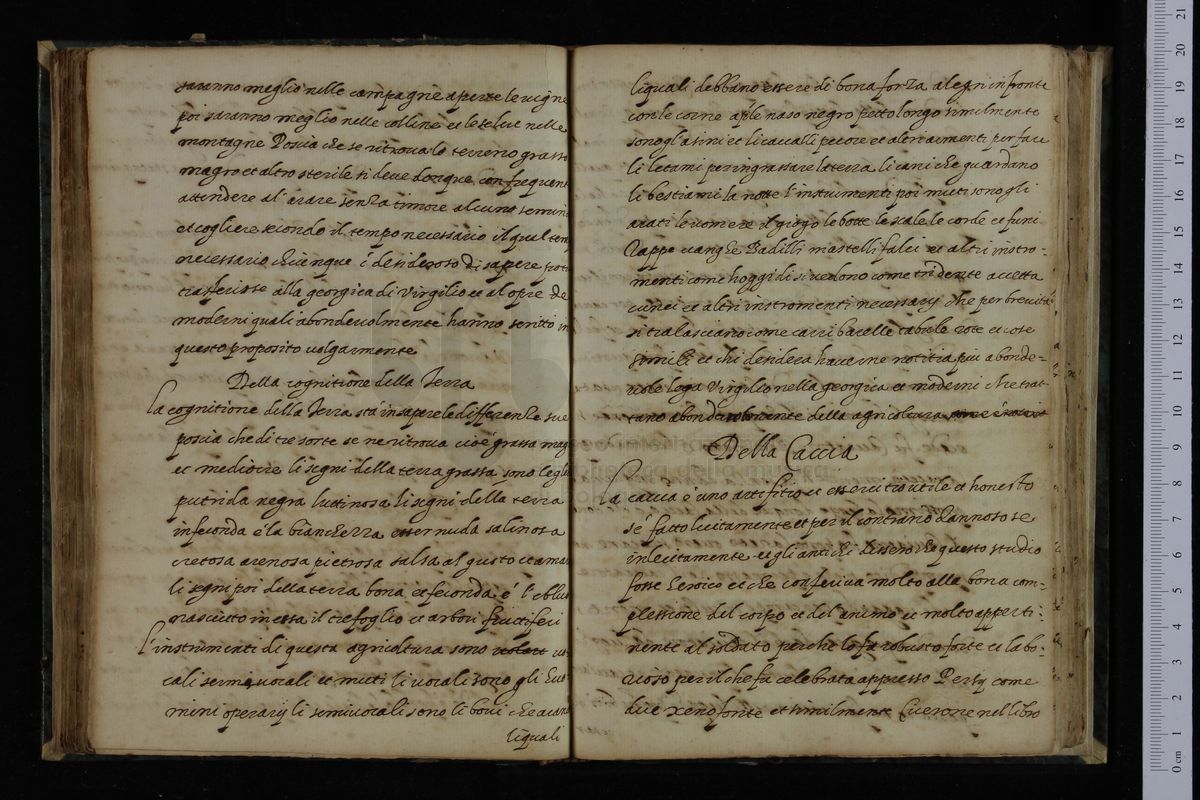 saranno meglio nelle campagne aperte le vigne
poi saranno meglio nelle colline et le selve nelle
montagne Poscia che se ritrova lo terreno grasso
magro et altro sterile si deve donque con frequent
attendere al arare senza timore alcuno semin
et cogliere secondo il tempo necessario il qual tem
necessario chiunque é desideroso di sapere
trasferisse alla georgica di Virgilio et al opre de
moderni quali abondevolmente hanno scritto in
questo proposito volgarmente
Della cognitione della Terra
La cognitione della Terra stá in sapere le differenze sue
poscia che di tre sorte se ne ritrova cioé grassa mag
et mediocre li segni della terra grassa sono
putrida negra lutinosa li segni della terra
infeconda é la bianchezza esser nuda salinosa
cretosa arenosa pietrosa salsa al gusto et ama
li segni poi della terra bona et feconda é l'
nasciuto in essa il trefoglio et arbori fruttiferi
L'instrumenti di questa agricoltura sono vo
cali semivocali et muti li vocali sono gli huo
mini operarij li semivocali sono li bovi che arano
liquali
liquali debbano essere di bona forza alegri in fronte
con le corne aple naso negro petto longo similmente
sono gl'asini et li cavalli pecore et altri armenti per fare
li letami per ingrassare la terra li cani che guardano
li bestiami la notte l'instrumenti poi muti sono gli
arati le vomere il giogo le botte le scale le corde et funi
Zappe vanghe Badilli martelli falci et altri instro-
menti come hoggidi si vedono come tridente accetta
cunei et altri instromenti necessarij che per brevità
si tralasciano come carri bacelle tabule rote et cose
simili et chi desidera haverne notitia piu abonde-
vole lega Virgilio nella georgica et moderni che trat-
tano abondevolmente della agricoltura
Della Caccia
La caccia é uno artifitio et essercitio utile et honesto
sé fatto licitamente et per il contrario dannoso se
inlecitamente et gli antichi dissero che questo studio
fosse heroico et che conferiva molto alla bona com-
plessione del corpo et del animo et molto apperti-
nente al soldato perche lo fa robusto forte et labo-
rioso per il che fu celebrata appresso Persij come
dice xenofonte et similmente Cicerone nel libro